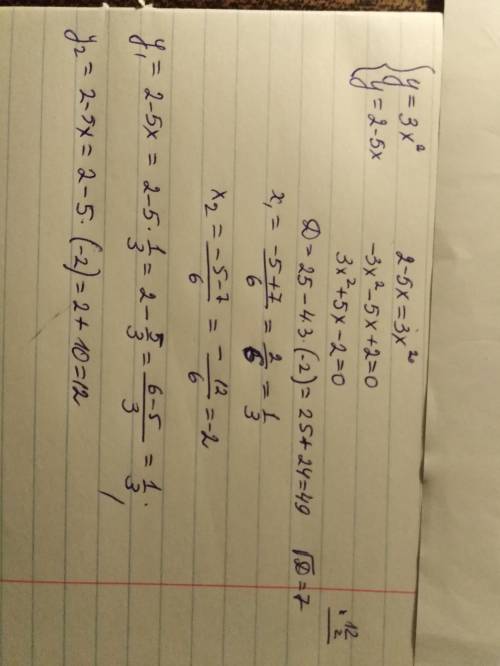 { y = 3x²
{ y = 2-5x
2-5x=3x²
-3x²-5x+2=0
3x²+5x-2=0
D=25-4·3·(-2)=25+24=49 √D=7
x₁ = (-5+7)/6 = 2/6 = 1/3
x₂ = (-5-7)/6 = -12/6 = -2
y₁ = 2-5x = 2-5·1/3 = 2-5/3 = (6-5)/3 = 1/3.
y₂ = 2-5x = 2-5·(-2)=2+10=12
12
2